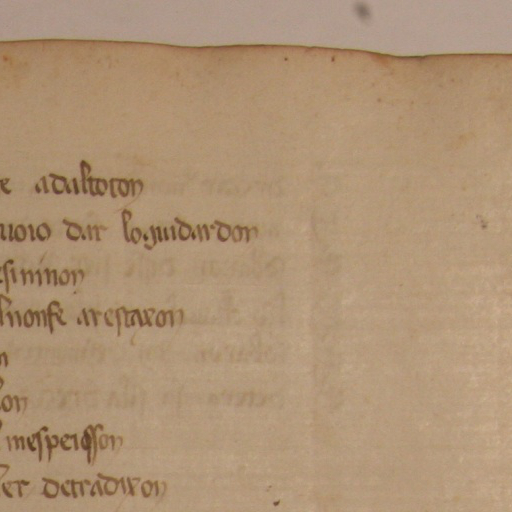 e adaltoton
uoio dar lo guidardon
esininon
lnonfe arestaxon
n
on
mespeisson
er detradixon